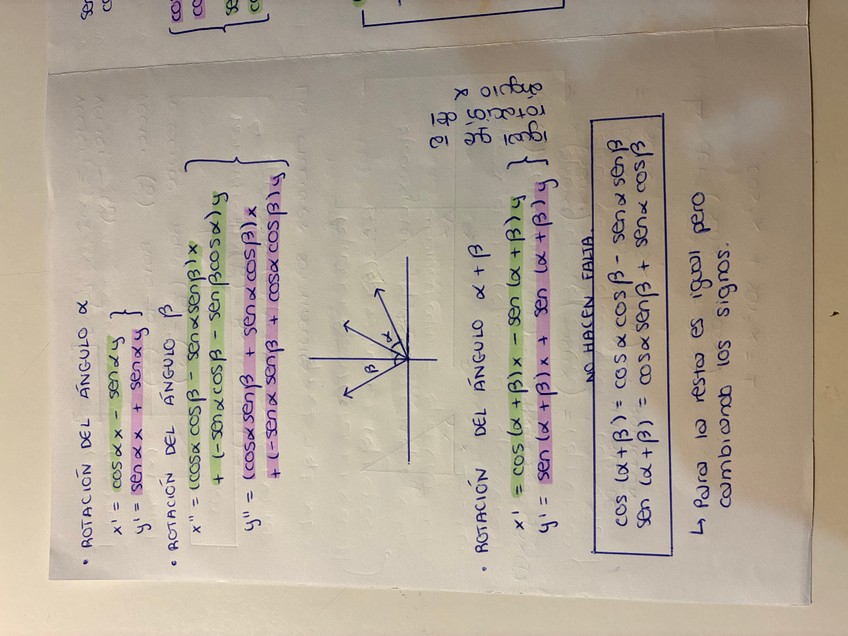 • ROTACIÓN DEL ÁNGULO α
x' = cosαx - senαy
y' = senαx + senαy }
• ROTACIÓN DEL ÁNGULO β
x'' = (cosα cosβ - senα senβ)x
+ (-senα cosβ - senβ cosα)y
y'' = (cosα senβ + senα cosβ)x
+ (-senα senβ + cosα cosβ)y
β
α
• ROTACIÓN DEL ÁNGULO α+β
x' = cos(α+β)x - sen(α+β)y
y' = sen(α+β)x + sen(α+β)y }
NO HACEN FALTA
cos(α+β) = cosα cosβ - senα senβ
sen(α+β) = cosα senβ + senα cosβ
↳ Para la resta es igual pero
cambiando los signos.